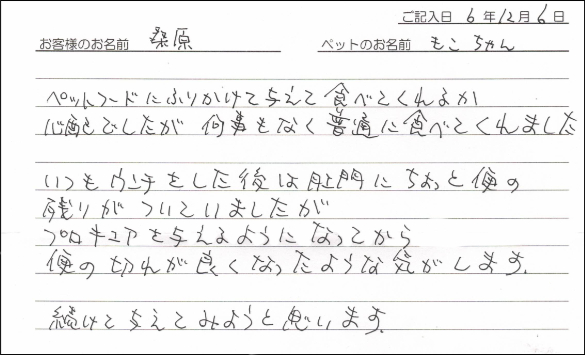 ご記入日 6年12月6日
お客様のお名前 桑原 ペットのお名前 もこちゃん
ペットフードにふりかけて与えて食べてくれるか
心配でしたが 何事もなく普通に食べてくれました
いつもウンチをした後は肛門にちょっと便の
残りがついていましたが
プロキュアを与えるようになってから
便の切れが良くなったような気がします。
続けて与えてみようと思います。